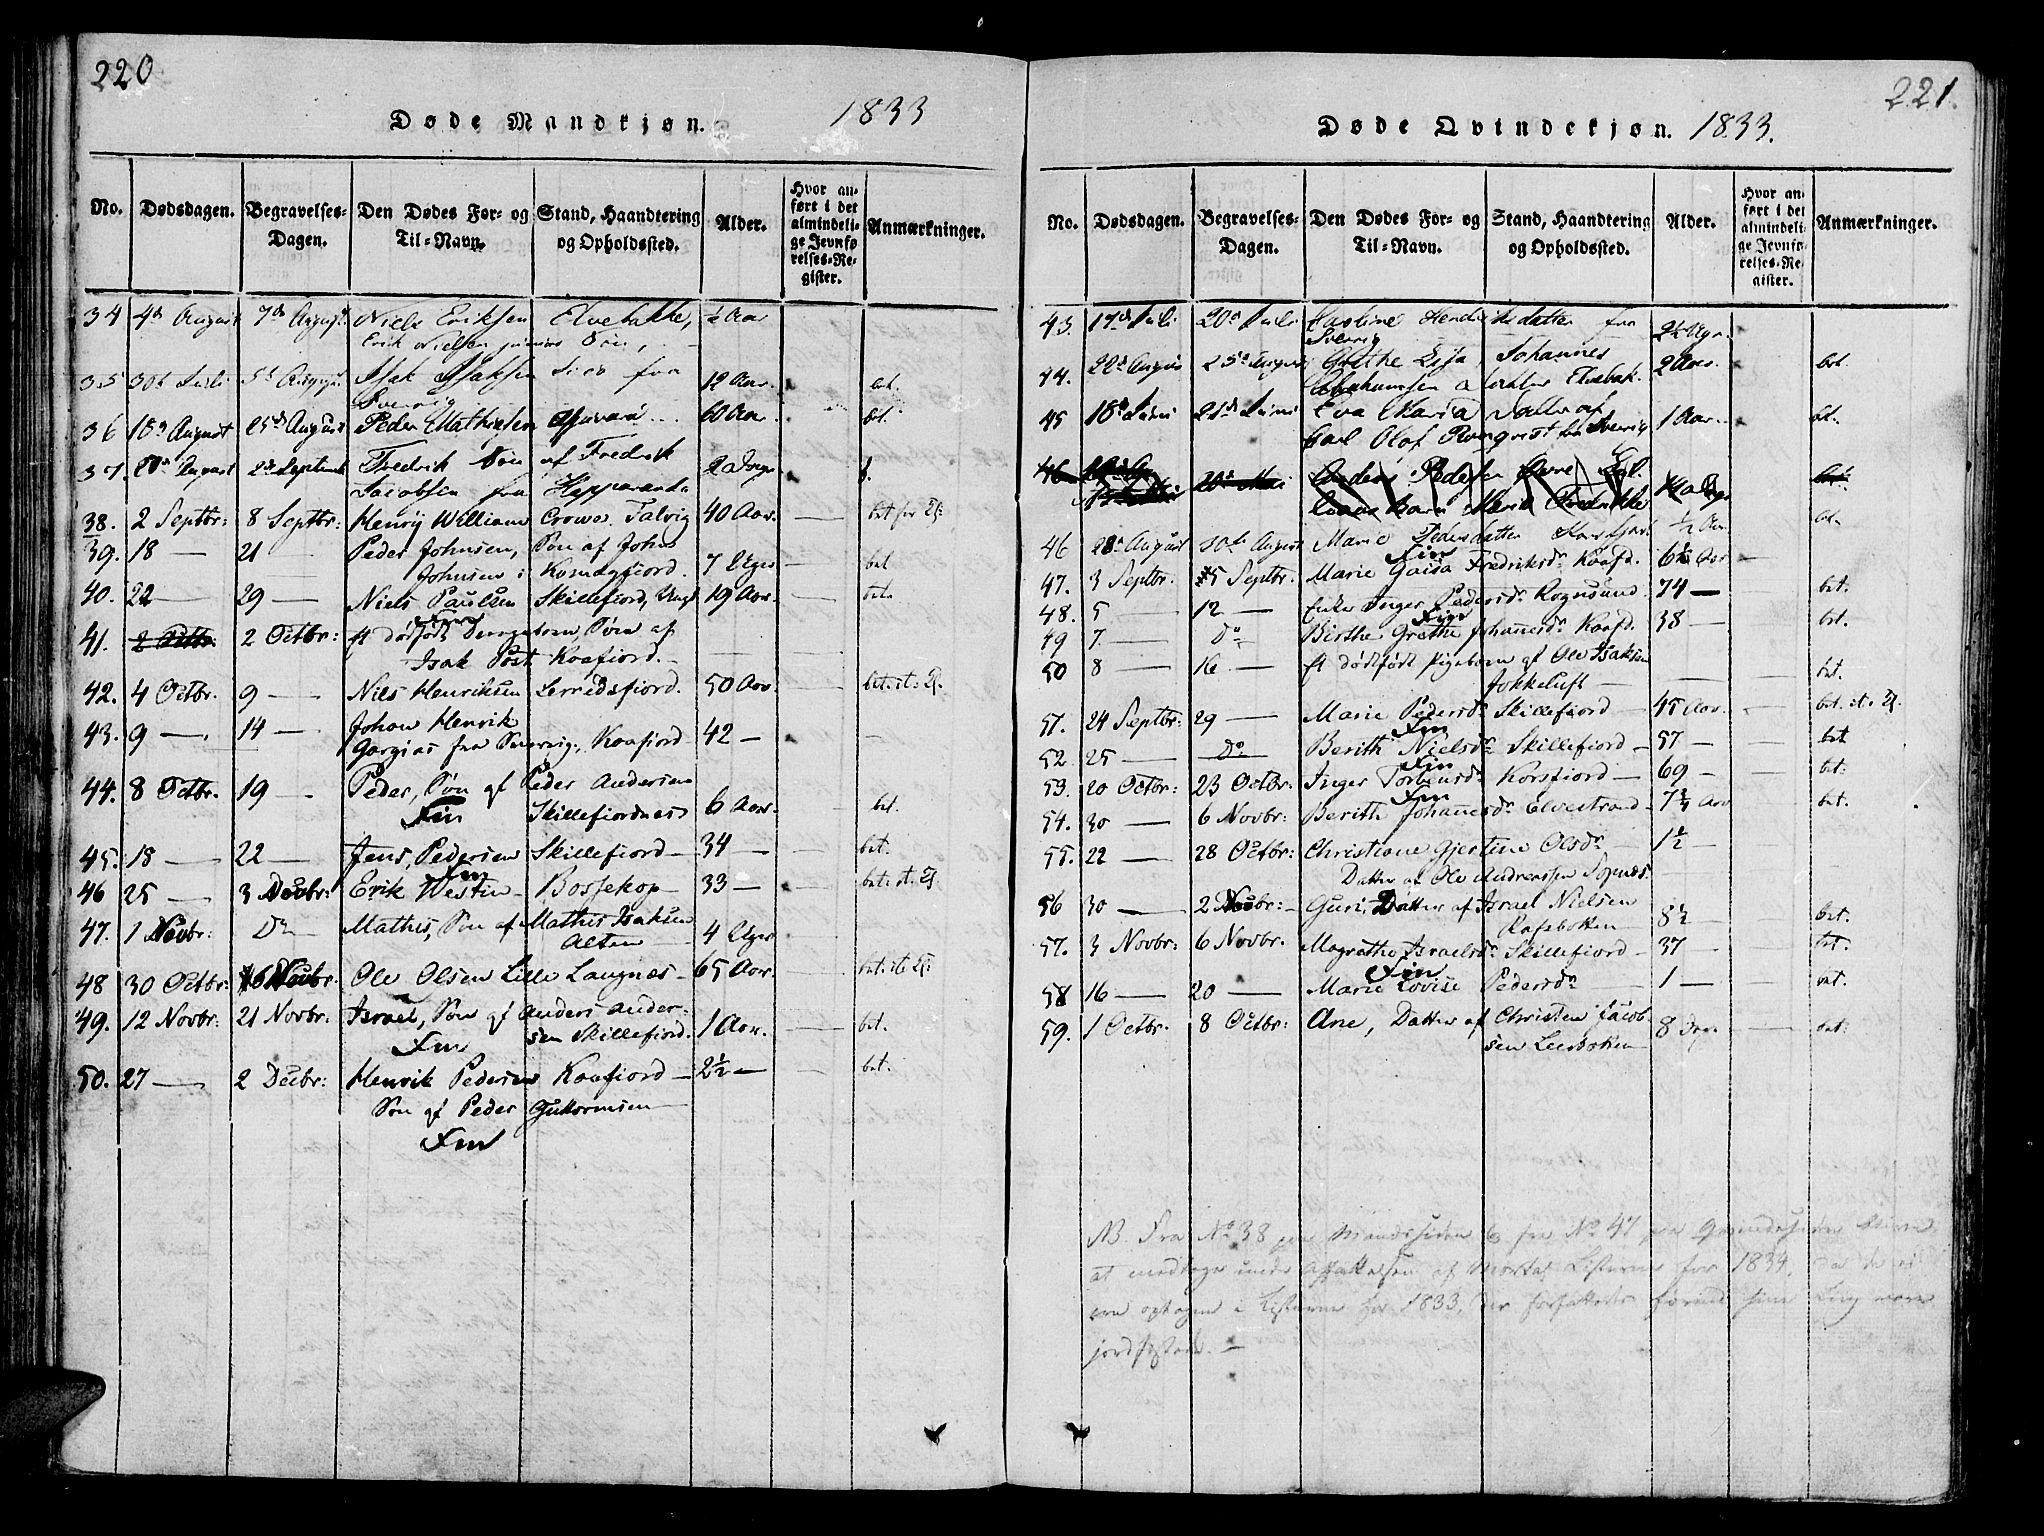 220
Døde Mandkjøn. 1833
No. Dødsdagen. Begravelses-Dagen. Den Dødes For- og Til-Navn. Stand, Haandtering og Opholdssted. Alder. Hvor anført i det almindelige Jevnførelses-Register. Anmærkninger.
34 4de August 7de August Niels Eriksen Elvebakke, ½ Aar
Erik Nielsen juniors Søn,
35 30te Juli 5te August Isak Isaksen Siro fra 12 Aar. bet.
Sverrig
36 18de August 25de August Peder Mathiesen 60 Aar bet.
37. August 2de Septemb Fredrik Søn af Fredrik 2 Dage
Jacobsen fra Happaranda
38. 2 Septbr: 8 Septbr: Henry William Crowe. Talvig 40 Aar. bet for
39. 18 — 21 — Peder Johnsen, Søn af Johns
Johnsen i Komagfiord. 7 Uger bet
40. 22 — 29 — Niels Paulsen Skillefiord, 19 Aar. bet.
Fin
41. 2 Octbr: et dødfødt Drengebarn, Søn af
Isak Post Kaafiord.
42. 4 Octbr. 9 — Niels Henriksen Lerredsfiord. 50 Aar. bet.
43. 9 — 14 — Johan Henrik
Gorgias fra Sverrig. Kaafiord 42 —
44. 8 Octbr. 19 — Peder, Søn af Peder Andersen
Fin Skillefiordnes 6 Aar. bet.
45. 18 — 22 — Jens Pedersen Skillefiord — 34 — bet.
Fin
46 25 — 3 Decbr: Erik Westin — Bossekop — 33 — bet.
47. 1 Novbr: Do — Mathis, Søn af Mathis Isaksen
Alten 4 Uger
48 30 Octbr: 6 Novbr. Ole Olsen Lille Langnæs — 65 Aar. bet.
49. 12 Novbr: 21 Novbr: Israel, Søn af Anders Ander-
Fin sen Skillefiord. 1 Aar. bet.
50. 27 — 2 Decbr: Henrik Pedersen Kaafiord — 2½ — bet.
Søn af Peder Guttormsen
Fin
221.
Døde Qvindekjøn. 1833.
No. Dødsdagen. Begravelses-Dagen. Den Dødes For- og Til-Navn. Stand, Haandtering og Opholdssted. Alder. Hvor anført i det almindelige Jevnførelses-Register. Anmærkninger.
43. 17de Juli 20de Juli Hendriksdatter fra
Sverrig 2½ Aar.
44. 22de August 25de August Grethe Johannes
Abrahamsen datter Elvebak. 2 Aar. bet.
45 18de Juni 21de Juni Eva Maria Datter af
Carl Olof fra Sverrig 1 Aar. bet.
46. 20de Mai Anders Pedersen
Barn Maria Fredrikke
46 28de August 30te August Marie Pedersdatter Korsfjord ½ Aar. bet.
Fin
47. 3 Septbr. 5 Septbr. Marie Gaisa Fredriksdr. Kaafd. 6½ Aar
48. 5 — 12 — Enke Inger Pedersdr. Rognsund. 74 — bet.
Fin
49 7. — Do — Birthe Grethe Johannesdr Kaafd. 38 — bet.
50 8 — 16 — et dødfødt Pigebarn af Ole Isaksen
Jokkeluft — bet.
51. 24 Septbr: 29 — Marie Pedersdr. Skillefiord — 45 Aar. bet.
Fin
52. 25 — Do — Berith Nielsdr. Skillefiord — 57 — bet
Fin
53. 20 Octbr: 23 Octbr: Inger Torbensdr. Korsfiord — 69 — bet.
Fin
54. 30 — 6 Novbr: Berith Johannesdr Elvestrand — 7¾ Aar bet.
55. 22 — 28 Octbr: Christiane Gjertine Olsdr. — 1½ —
Datter af Ole Andreassen Sopnæs
56 30 — 2 Novbr: — Guri, Datter af Israel Nielsen
Rafsbotten — 8½ — bet.
57. 3 Novbr: 6 Novbr. Magrethe Israelsdr. Skillefiord — 37 — bet.
Fin
58 16 — 20 — Marie Lovise Pedersdr. — 1 — bet.
59. 1 Octbr. 8 Octbr: Ane, Datter af Christen Jacob-
sen Leerbotten — 8 Dage bet.
NB. Fra No 38 paa Mandssiden & fra No 47 paa Qvindesiden blive
at medtage under Affattelsen af Mortal Listerne for 1834, da de ei
ere optagne i Listerne for 1833, der forfattedes førend
jordfæstede. —